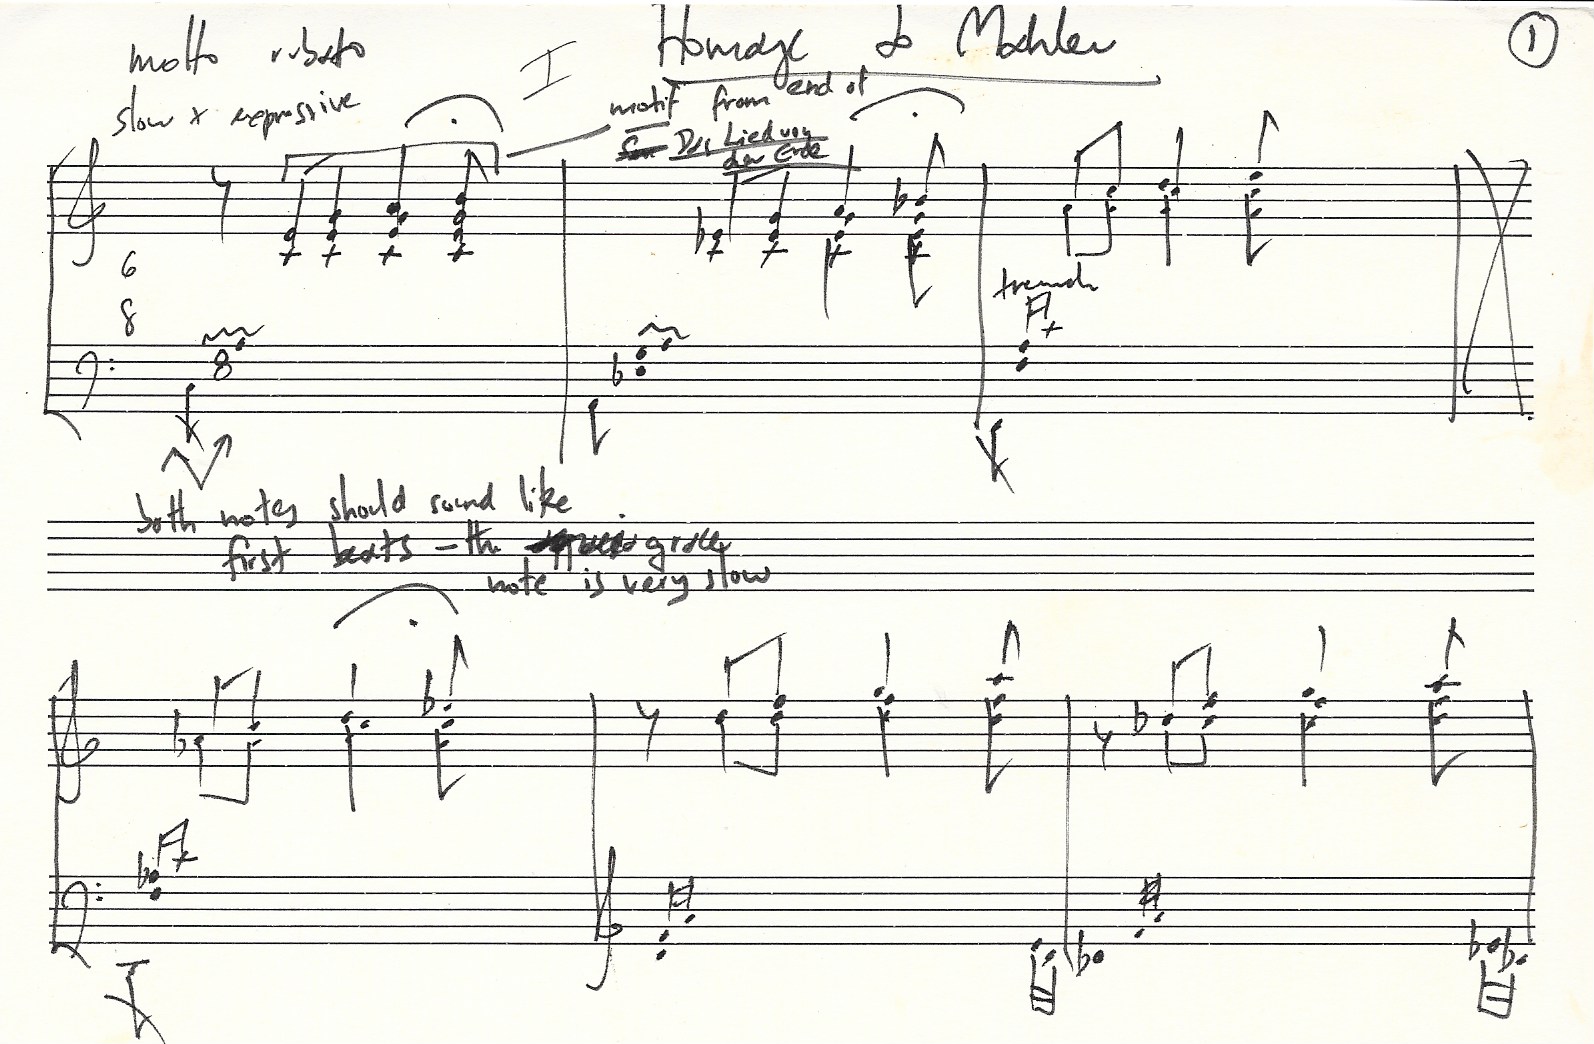 Homage to Mahler
1
molto rubato
I
slow + expressive
motif from end of
Das Lied von
der Erde
6
8
tremolo
both notes should sound like
first beats – the grace
note is very slow